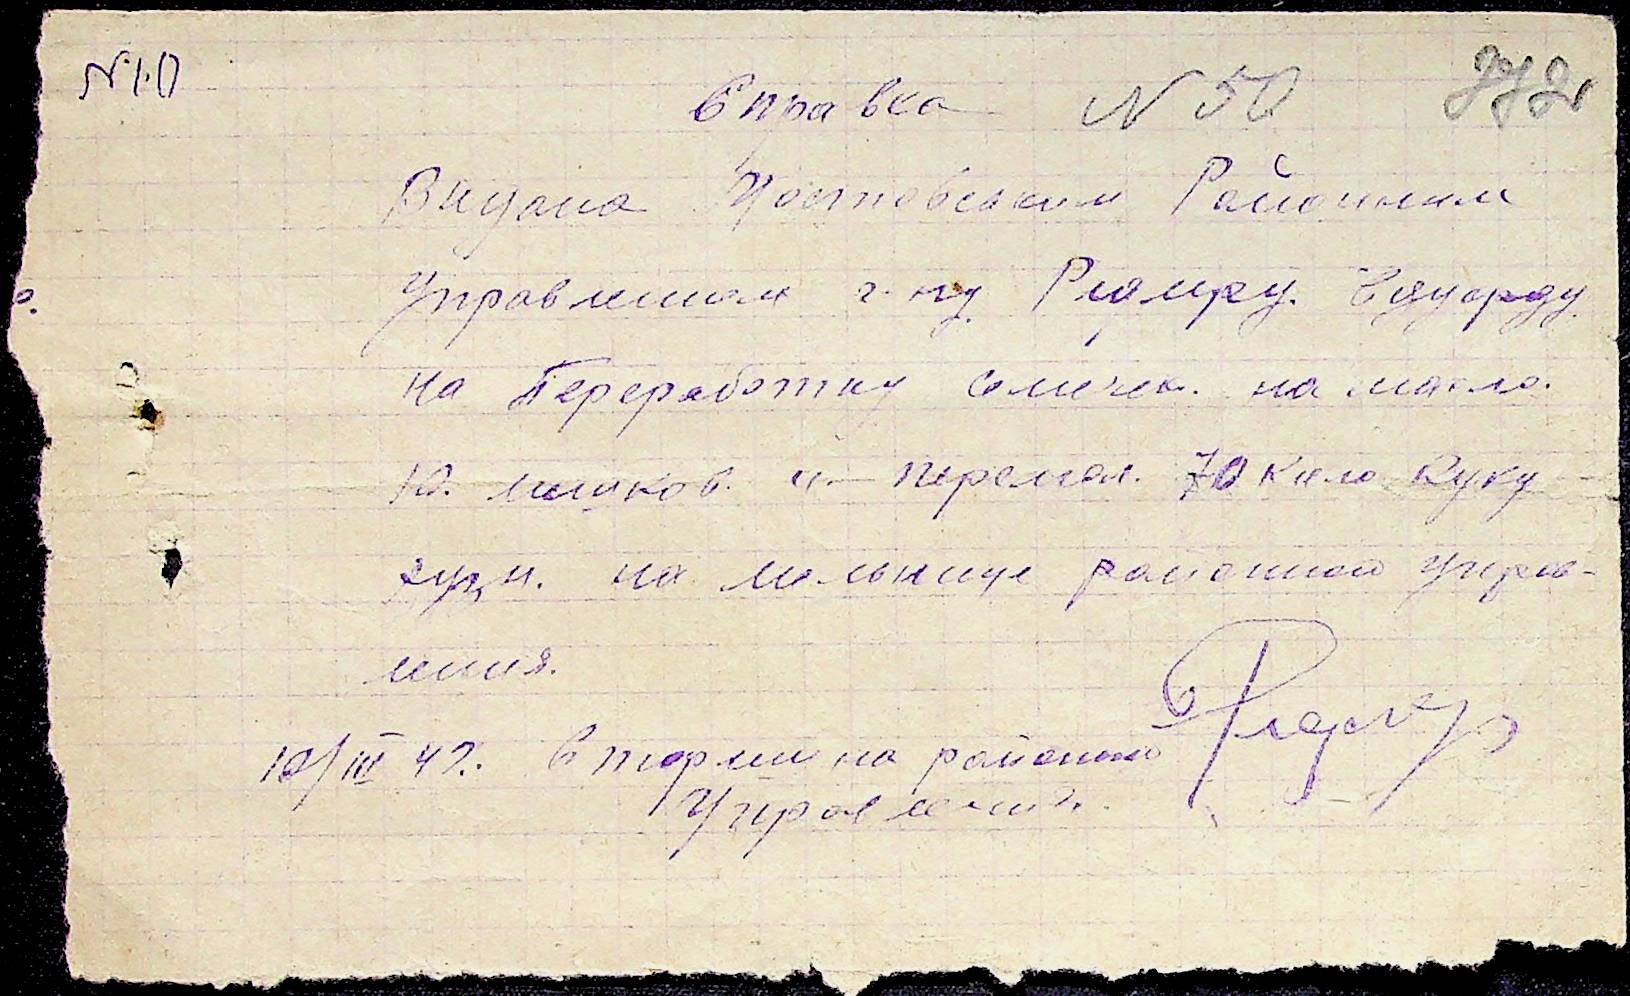 N 10
Справка N 50
Видана Мостовським Районним
Управлением г-ну Едуарду
на Переработку семечек. на масло.
10. мешков. и перемол. 70 кило куку
рузи. на мельнице районной управ-
ления.
10/III 42. Старшина районно
Управления.